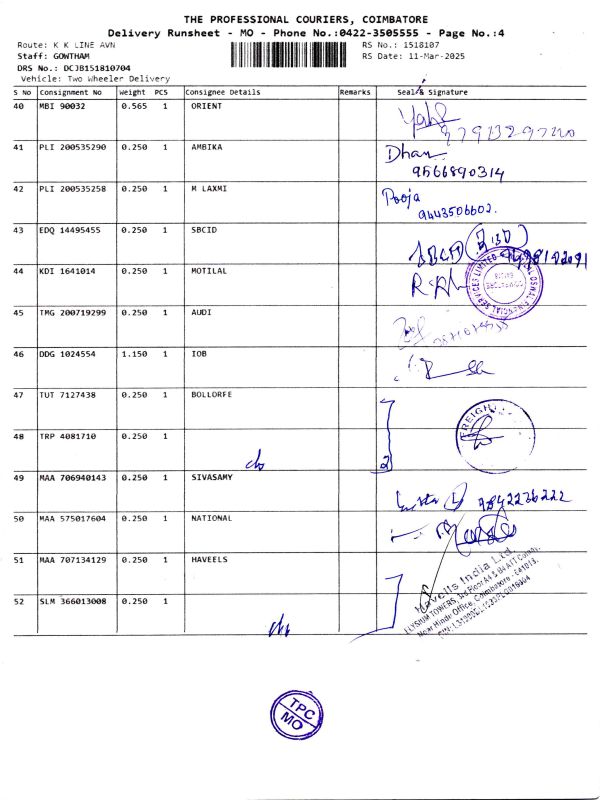 THE PROFESSIONAL COURIERS, COIMBATORE
Delivery Runsheet - MO - Phone No.:0422-3505555 - Page No.:4
Route: K K LINE AVN RS No.: 1518107
Staff: GOWTHAM RS Date: 11-Mar-2025
DRS No.: DCJB151810704
Vehicle: Two Wheeler Delivery
S No Consignment No Weight PCS Consignee Details Remarks Seal & Signature
40 MBI 90032 0.565 1 ORIENT
41 PLI 200535290 0.250 1 AMBIKA Dhan
9566890314
42 PLI 200535258 0.250 1 M LAXMI Pooja
9443506602.
43 EDQ 14495455 0.250 1 SBCID
44 KDI 1641014 0.250 1 MOTILAL
45 TMG 200719299 0.250 1 AUDI
46 DDG 1024554 1.150 1 IOB
47 TUT 7127438 0.250 1 BOLLORFE
FREIGHT
48 TRP 4081710 0.250 1
2
49 MAA 706940143 0.250 1 SIVASAMY
9842236222
50 MAA 575017604 0.250 1 NATIONAL
51 MAA 707134129 0.250 1 HAVEELS
Havells India Ltd.
ELYSIUM TOWERS, 3rd Floor
Near Hindu Office, Coimbatore - 641018.
52 SLM 366013008 0.250 1
TPC
MO